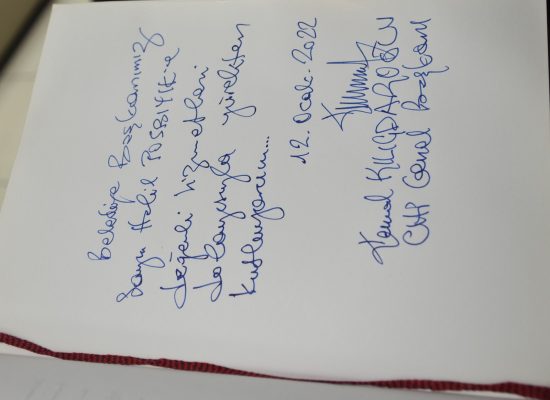 Belediye Başkanımız
Sayın Halil POSBIYIK'a
değerli hizmetleri
dolayısıyla yürekten
kutluyorum...
12. Ocak. 2022
Kemal KILIÇDAROĞLU
CHP Genel Başkanı